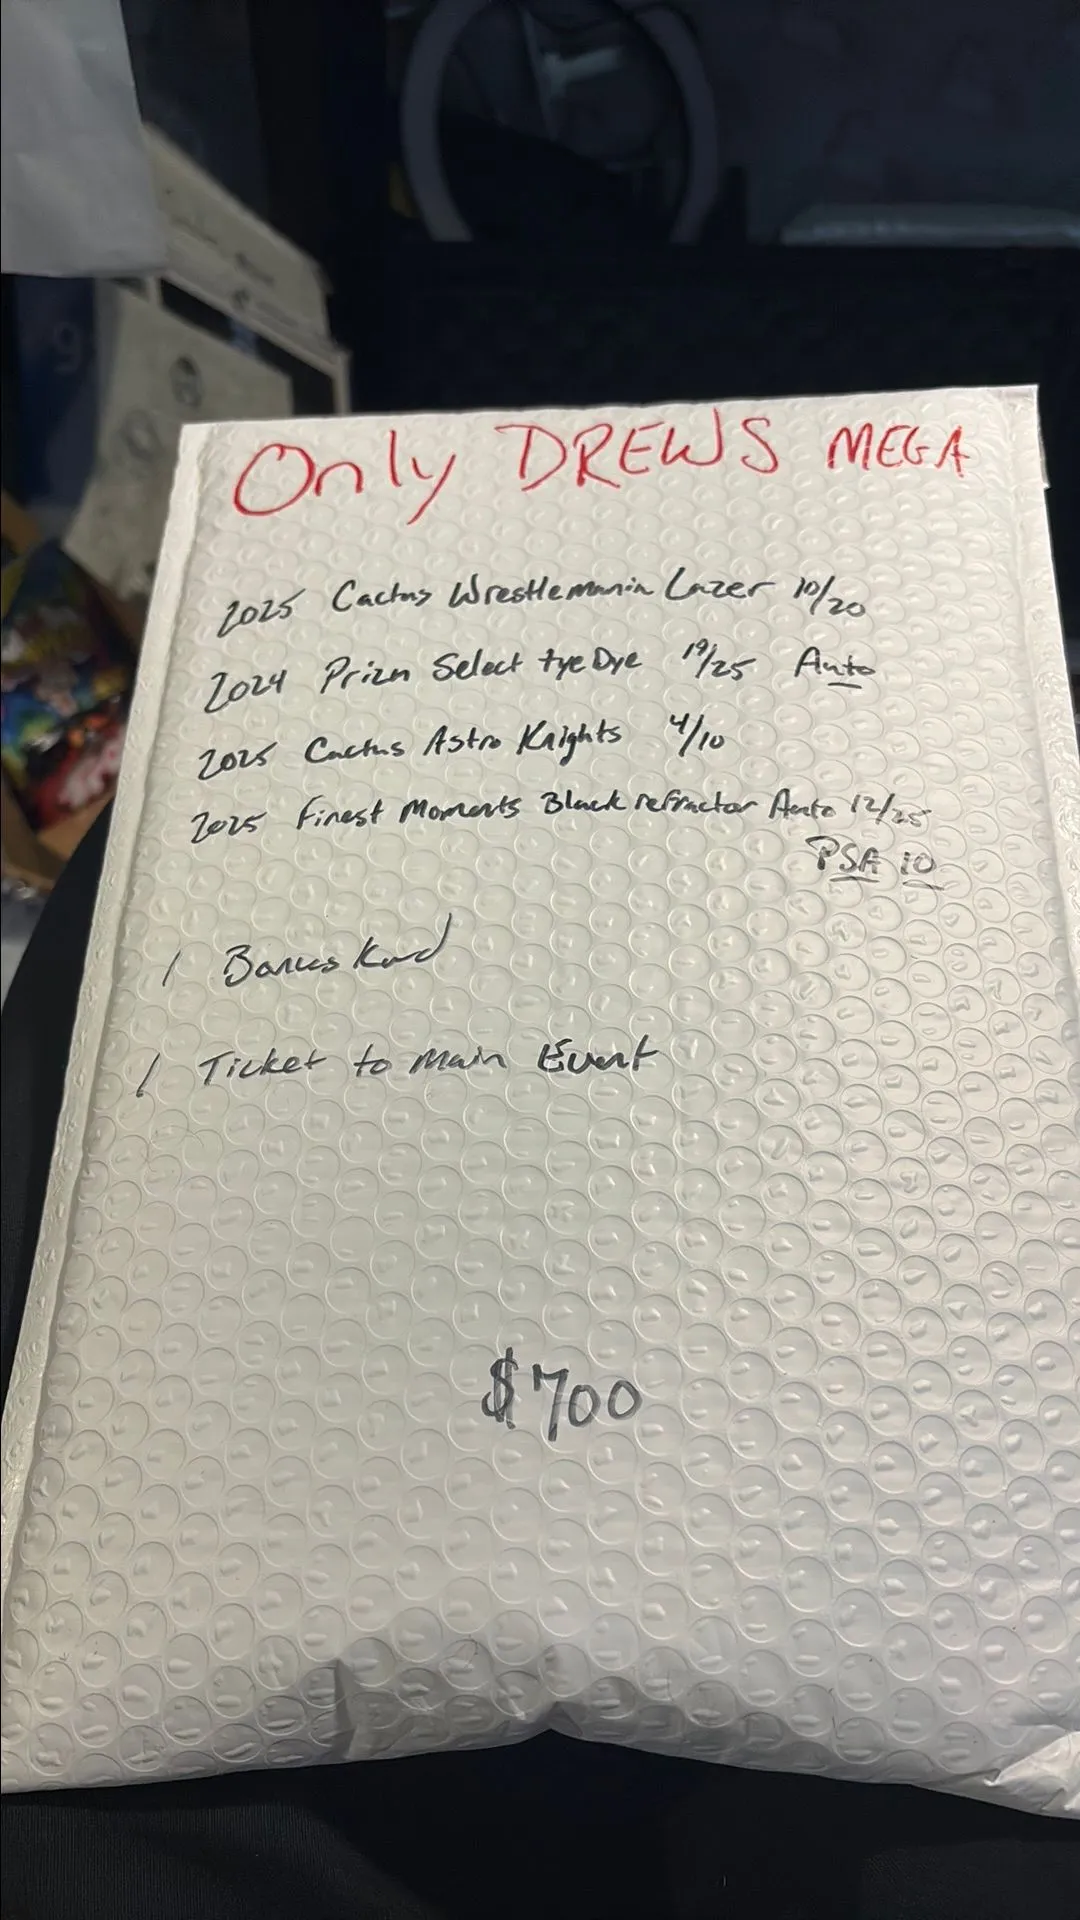 Only DREWS MEGA
2025 Cactus Wrestlemania Lazer 10/20
2024 Prizm Select tye Dye 19/25 Auto
2025 Cactus Astro Knights 4/10
2025 Finest Moments Black refractor Auto 12/25
PSA 10
1 Bonus Kard
1 Ticket to Main Event
$700